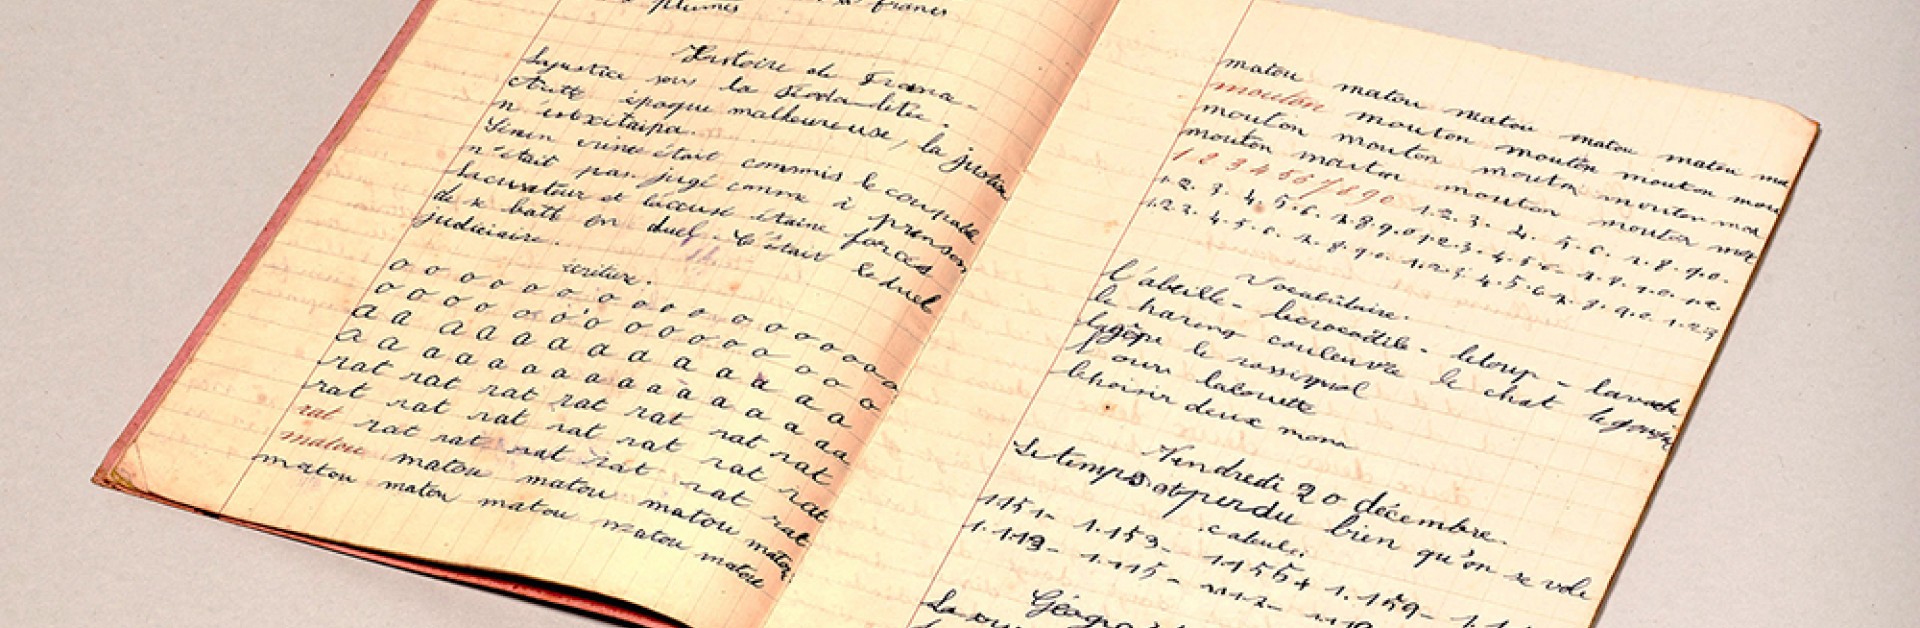 plumes francs
Histoire de France.
la justice sous la
époque malheureuse, la justice
n'
était commis le coupable
n'était pas jugé comme à présent
et étaine forcés
de x batt en duel. C'était le duel
judiciaire.
écriture.
o o o o o o o o o o o o o o o
o o o o o o o o o o o o o
a a a a a a a a a a a a a
a a a a a a a a a a a a a
rat rat rat rat rat rat rat
rat rat rat rat rat rat rat
rat rat rat rat rat rat rat
matou matou matou matou matou
matou matou matou matou matou
matou matou matou matou matou ma
mouton mouton mouton mouton mou
mouton mouton mouton mouton mou
mouton mouton mouton mouton mou
1 2 3 4 5 6 7 8 9 0 1. 2. 3. 4. 5. 6. 7. 8. 9. 0.
1. 2. 3. 4. 5. 6. 7. 8. 9. 0 1. 2. 3. 4. 5. 6. 7. 8. 9. 0. 1. 2.
1. 2. 3. 4. 5. 6. 7. 8. 9. 0. 1. 2. 3. 4. 5. 6. 7. 8. 9. 0. 1. 2. 3
Vocabulaire.
l'abeille - - leloup - lavache
le hareng couleuvre le chat
le
our lalouette
choisir deux mons
Vendredi 20 décembre.
Le temps perdu bien qu'on se vole
calcul.
1151 - 1.153 - 1155 + 1.159 -
1.113 - 1.115 -
Géogra
La